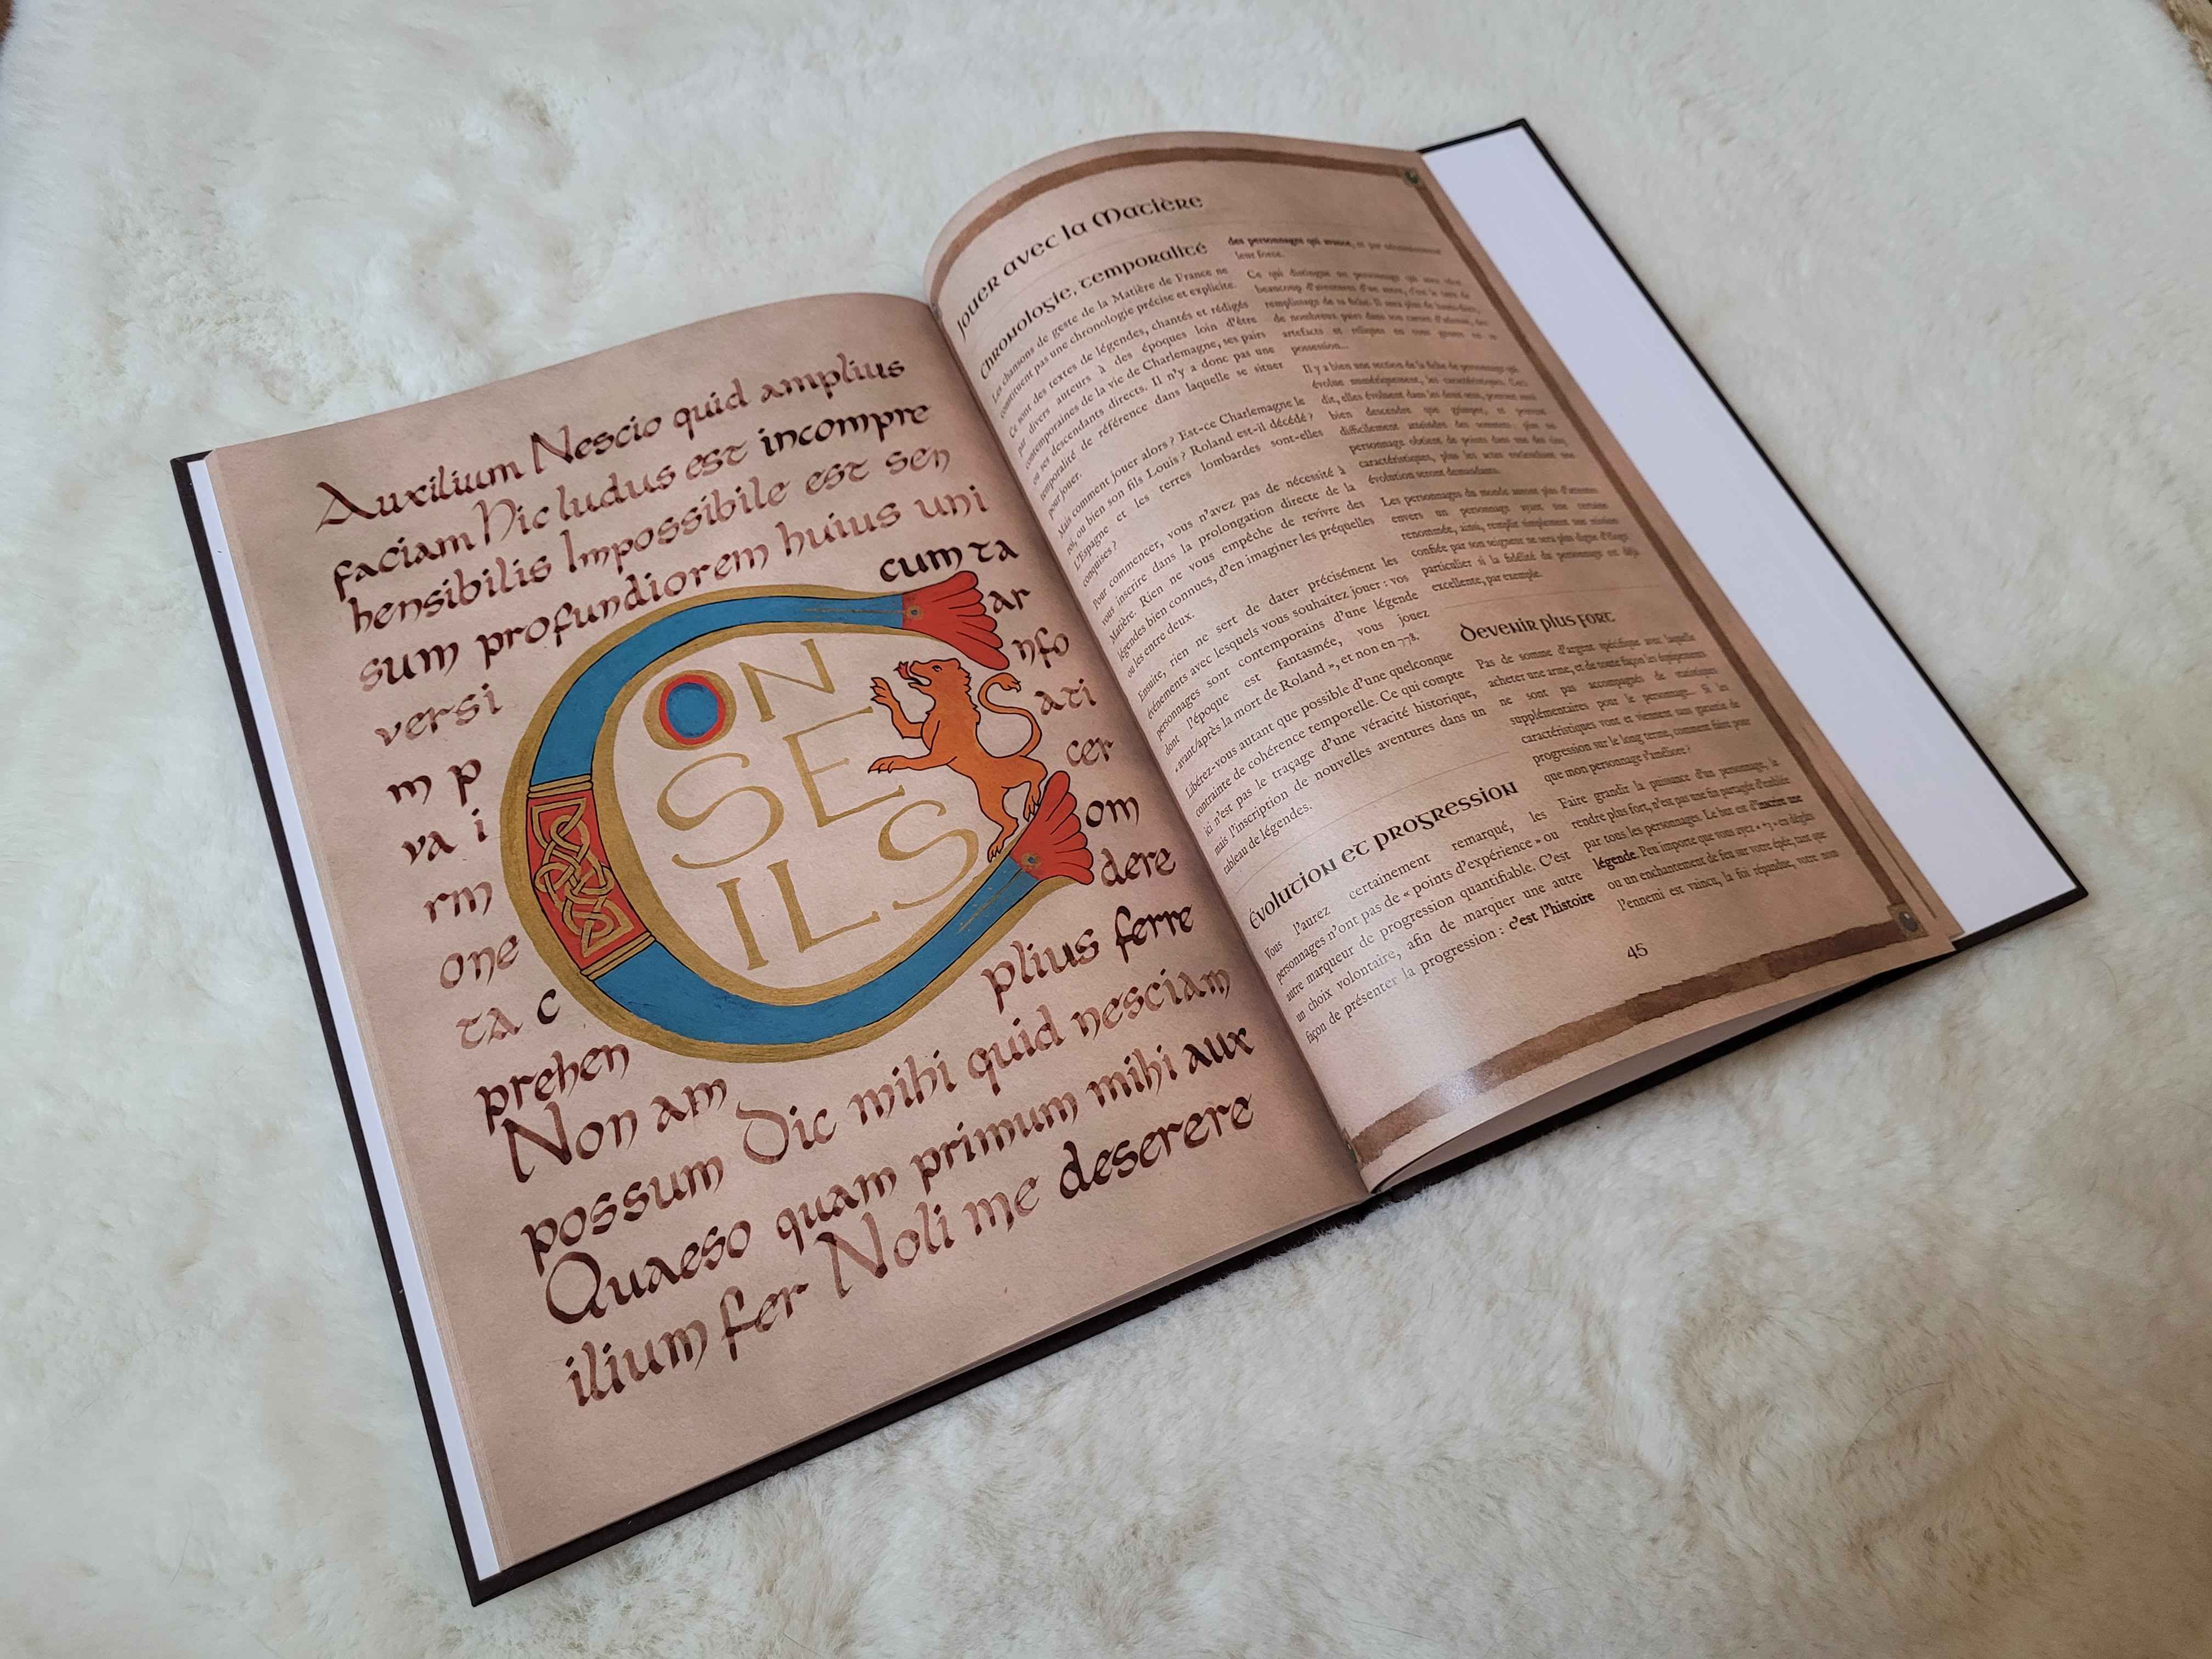 Auxilium Nescio quid amplius
faciam Hic ludus est incompre
hensibilis Impossibile est sen
sum profundiorem huius uni
versi cum ta
m p ar
va i nfo
rm ati
one cer
ta c om
prehen dere
Non am plius ferre
possum Dic mihi quid nesciam
Quaeso quam primum mihi aux
ilium fer Noli me deserere
CON
SE
ILS
Jouer avec la Matière
Chronologie, temporalité
Les chansons de geste de la Matière de France ne
constituent pas une chronologie précise et explicite.
Ce sont des textes de légendes, chantés et rédigés
par divers auteurs à des époques loin d'être
contemporaines de la vie de Charlemagne, ses pairs
ou ses descendants directs. Il n'y a donc pas une
temporalité de référence dans laquelle se situer
pour jouer.
Mais comment jouer alors ? Est-ce Charlemagne le
roi, ou bien son fils Louis ? Roland est-il décédé ?
L'Espagne et les terres lombardes sont-elles
conquises ?
Pour commencer, vous n'avez pas de nécessité à
vous inscrire dans la prolongation directe de la
Matière. Rien ne vous empêche de revivre des
légendes bien connues, d'en imaginer les préquelles
ou les entre deux.
Ensuite, rien ne sert de dater précisément les
événements avec lesquels vous souhaitez jouer : vos
personnages sont contemporains d'une légende
dont l'époque est fantasmée, vous jouez
« avant/après la mort de Roland », et non en 778.
Libérez-vous autant que possible d'une quelconque
contrainte de cohérence temporelle. Ce qui compte
ici n'est pas le traçage d'une véracité historique,
mais l'inscription de nouvelles aventures dans un
tableau de légendes.
Évolution et progression
Vous l'aurez certainement remarqué, les
personnages n'ont pas de « points d'expérience » ou
autre marqueur de progression quantifiable. C'est
un choix volontaire, afin de marquer une autre
façon de présenter la progression : c'est l'histoire
des personnages qui avance, et par
leur force.
Ce qui distingue un personnage qui
beaucoup d'aventures d'un
remplissage de sa fiche. Il aura plus de
de nombreux pairs dans son carnet
artefacts et reliques en tout genre en
possession...
Il y a bien une section de la fiche de personnage qui
évolue numériquement, les caractéristiques. Ceci
dit, elles évoluent dans les deux sens, peuvent aussi
bien descendre que grimper, et peuvent
difficilement atteindre des sommets : plus un
personnage obtient de points dans une des cinq
caractéristiques, plus les actes
évolution seront demandants.
Les personnages du monde auront plus d'attentes
envers un personnage ayant une certaine
renommée, ainsi, remplir simplement une mission
confiée par son seigneur ne sera plus digne d'éloges
particulier si la fidélité du personnage est déjà
excellente, par exemple.
Devenir plus fort
Pas de somme d'argent spécifique avec laquelle
acheter une arme, et de toute façon les équipements
ne sont pas accompagnés de statistiques
supplémentaires pour le personnage... Si les
caractéristiques vont et viennent sans garantie de
progression sur le long terme, comment faire pour
que mon personnage s'améliore ?
Faire grandir la puissance d'un personnage, le
rendre plus fort, n'est pas une fin partagée d'emblée
par tous les personnages. Le but est d'inscrire une
légende. Peu importe que vous ayez « +3 » en dégâts
ou un enchantement de feu sur votre épée, tant que
l'ennemi est vaincu, la foi répandue, votre nom
45